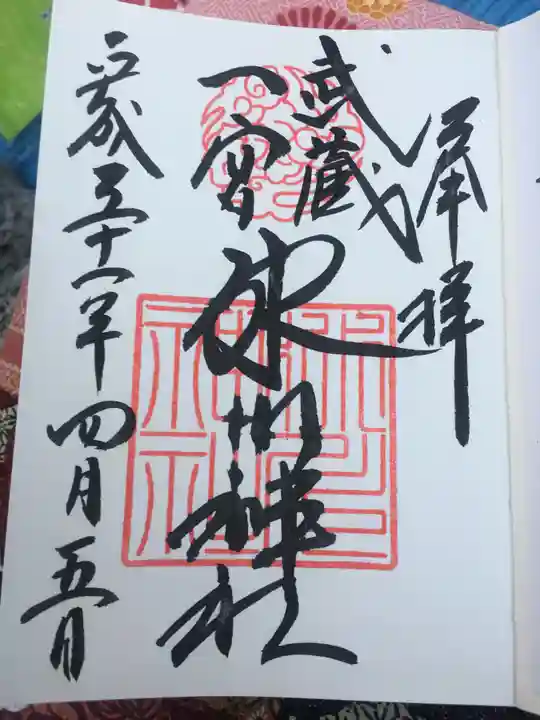 奉拝
武蔵
一宮
氷川神社
平成三十一年四月五日